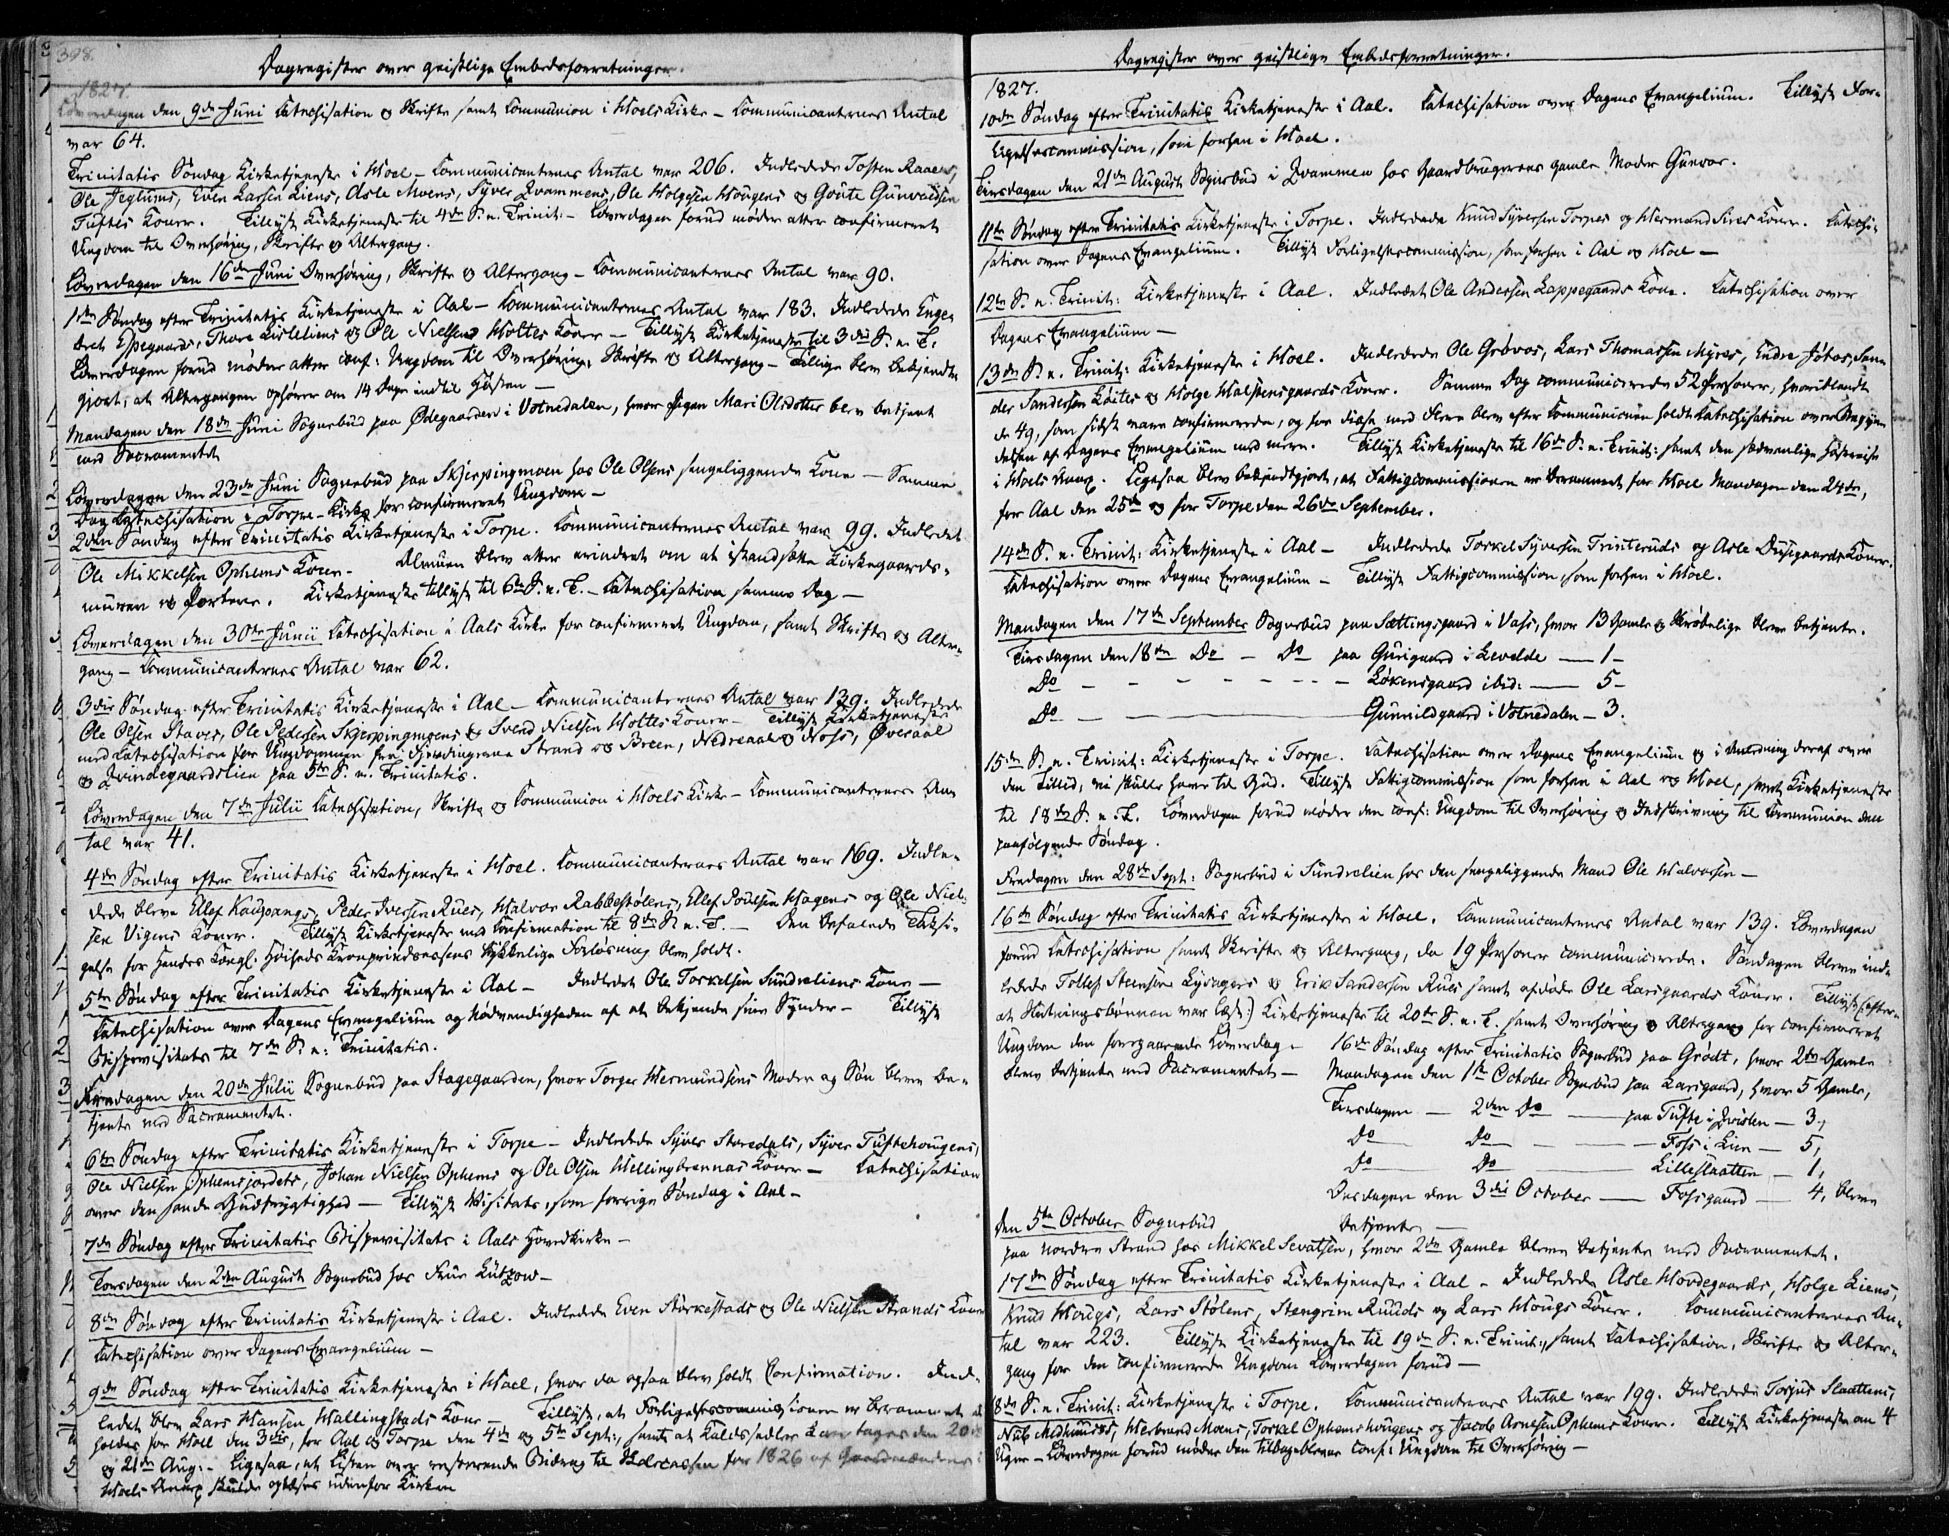 398.
Dagregister over geistlige Embedsforretninger.
1827.
Løverdagen den 9de Juni Catechisation og Skrifte samt Communion i Hoels Kirke – Communicanternes Antal
var 64.
Trinitatis Søndag Kirketjeneste i Hoel – Communicanternes Antal var 206. Indledede Tosten Raaens,
Ole Jeglums, Even Larsen Liens, Asle Moens, Syver Qvammens, Ole Holgesen Hougens og Goute Gunvaldsen
Tuftes Koner. Tillyst Kirketjeneste til 4de S. e. Trinit: – Løverdagen forud møder atter confirmeret
Ungdom til Overhøring, Skrifte og Altergang.
Løverdagen den 16de Juni Overhøring, Skrifte og Altergang – Communicanternes Antal var 90.
1ste Søndag efter Trinitatis Kirketjeneste i Aal – Communicanternes Antal var 183. Indledede Enge
bret Espegaards, Thore Lisleliens og Ole Nielsens Holtes Koner – Tillyst Kirketjeneste til 3die S. e. T.
Løverdagen forud møder atter conf: Ungdom til Overhøring, Skrifte og Altergang – Tillige blev bekjendt
gjort, at Altergangen ophører om 14 Dage indtil Høsten –
Mandagen den 18de Juni Sognebud paa Ødegaarden i Votnedalen, hvor Pigen Mari Olsdotter blev betjent
med Sacramentet
Løverdagen den 23de Juni Sognebud paa Skjerpingmoen hos Ole Olsens sengeliggende Kone – Samme
Dag Catechisation i Torpe-Kirke for confirmeret Ungdom –
2den Søndag efter Trinitatis Kirketjeneste i Torpe. Communicanternes Antal var 99. Indledet
Ole Mikkelsen Ophems Kone – Almuen blev atter erindret om at istandsætte Kirkegaards-
muren og Portene. Kirketjeneste tillyst til 6te S. e. T. – Catechisation samme Dag –
Løverdagen den 30te Junii Catechisation i Aals Kirke for confirmeret Ungdom, samt Skrifte og Alter-
gang – Communicanternes Antal var 62.
3die Søndag efter Trinitatis Kirketjeneste i Aal – Communicanternes Antal var 139. Indledede
Ole Olsen Staves, Ole Pedersen Skjerpingmoens og Svend Nielsen Holtes Koner – Tillyst Kirketjeneste
med Catechisation for Ungdommen fra Fjerdingerne Strand og Breen, Nedreaal og Vots, Øvreaal
og Qvindegaardslien paa 5te S. e. Trinitatis.
Løverdagen den 7de Julii Catechisation, Skrifte og Communion i Hoels Kirke – Communicanternes An
tal var 41.
4de Søndag efter Trinitatis Kirketjeneste i Hoel. Communicanternes Antal var 169. Indle-
dede bleve Ellef Kaupangs, Peder Iversen Rues, Halvor Rabbestølens, Ellef Poulsen Hagens og Ole Niel
sen Vigens Koner. Tillyst Kirketjeneste med Confirmation til 8de S. e. T. – Den befalede Taksi-
gelse for Hendes Kongl. Høiheds Kronprindsessens lykkelige Forløsning blev holdt.
5te Søndag efter Trinitatis Kirketjeneste i Aal – Indledet Ole Torkelsen Sundreliens Kone –
Catechisation over Dagens Evangelium og Nødvendigheden af at bekjende sine Synder – Tillyst
Bispevisitats til 7de S. e. Trinitatis.
Fredagen den 20de Julii Sognebud paa Stagegaarden, hvor Torger Hermundsens Moder og Søn bleve be-
tjente med Sacramentet.
6te Søndag efter Trinitatis Kirketjeneste i Torpe – Indledede Syver Storedals, Syver Tuftehougens,
Ole Nielsen Ophemsjordets, Johan Nielsen Ophems og Ole Olsen Hellingbrennas Koner – Catechisation
over den sande Gudfrygtighed – Tillyst Visitats, som forrige Søndag i Aal –
7de Søndag efter Trinitatis Bispevisitats i Aals Hovedkirke –
Torsdagen den 2den August Sognebud hos Frue Lützow –
8de Søndag efter Trinitatis Kirketjeneste i Aal. Indledede Even Størkestads og Ole Nielsen Strands Koner
Catechisation over Dagens Evangelium –
9de Søndag efter Trinitatis Kirketjeneste i Hoel, hvor da ogsaa blev holdt Confirmation. Ind-
ledet blev Lars Hansen Hallingstads Kone – Tillyst, at Forligelsescommissionen er berammet at
holdes for Hoel den 3die, for Aal og Torpe den 4de og 5te Sept:, samt at Kaldssedler kan tages den 20de
og 21de Aug: – Ligesaa, at Listen over resterende Bidrag til for 1826 af Gaardmændene i
Hoels Annex skulde oplæses udenfor Kirken
Dagregister over geistlige Embedsforretninger.
1827.
10de Søndag efter Trinitatis Kirketjeneste i Aal. Catechisation over Dagens Evangelium. Tillyst For-
ligelsescommission, som forhen i Hoel.
Tirsdagen den 21de August Sognebud i Qvammen hos Gaardbrugerens gamle Moder Gunvor.
11te Søndag efter Trinitatis Kirketjeneste i Torpe. Indledede Knud Syversen Torpes og Hermand Sires Koner. Catechi-
sation over Dagens Evangelium. Tillyst Forligelsescommission, som forhen i Aal og Hoel –
12te S. e. Trinit: Kirketjeneste i Aal. Indledet Ole Andersen Lappegaards Kone. Catechisation over
Dagens Evangelium –
13de S. e. Trinit: Kirketjeneste i Hoel. Indledede Ole Grøvos, Lars Thomassen Myres, Endre Jótes, San
der Sandersen Løites og Holge Halstensgaards Koner. Samme Dag communicerede 52 Personer, hvoriblandt
de 49, som sidst vare confirmerede, og for disse med Flere blev efter Communionen holdt Catechisation over Begyn
delsen af Dagens Evangelium med mere. Tillyst Kirketjeneste til 16de S. e. Trinit: samt den sædvanlige Høstreise
i Hoels Annex. Ligesaa blev bekjendtgjort, at Fattigcommissionen er berammet for Hoel Mandagen den 24de,
for Aal den 25de og for Torpe den 26de September.
14de S. e. Trinit: Kirketjeneste i Aal – Indledede Torkel Syversen Trinteruds og Asle Dusgaards Koner.
Catechisation over Dagens Evangelium – Tillyst Fattigcommission, som forhen i Hoel.
Mandagen den 17de September Sognebud paa Sættingsgaard i Vats, hvor 13 Gamle og Skrøbelige bleve betjente.
Tirsdagen den 18de Do – Do paa Gurigaard i Leveldе — 1 –
Do – – – – – – – – Løkensgaard ibid: — 5 –
Do — Gunnildgaard i Votnedalen – 3.
15de S. e. Trinit: Kirketjeneste i Torpe. Catechisation over Dagens Evangelium og i Anledning deraf over
den Tillid, vi skulle have til Gud. Tillyst Fattigcommission som forhen i Aal og Hoel, samt Kirketjeneste
til 18de S. e. T. Løverdagen forud møder den conf: Ungdom til Overhøring og Indskrivning til Communion den
paafølgende Søndag.
Fredagen den 28de Sept: Sognebud i Sundrelien hos den sengeliggende Mand Ole Halvorsen –
16de Søndag efter Trinitatis Kirketjeneste i Hoel. Communicanternes Antal var 139. Løverdagen
forud Catechisation samt Skrifte og Altergang, da 19 Personer communicerede. Søndagen bleve ind-
ledede Tollef Steensen Lysagers og Erik Sandersen Rues samt afdøde Ole Larsgaards Koner. Tillyst (:efter-
at Slutningsbønnen var læst:) Kirketjeneste til 20de S. e. T. samt Overhøring og Altergang for confirmeret
Ungdom den foregaaende Løverdag – 16de Søndag efter Trinitatis Sognebud paa Grødt, hvor 2de Gamle
bleve betjente med Sacramentet – Mandagen den 1ste October Sognebud paa Larsgaard, hvor 5 Gamle,
Tirsdagen — 2den Do — paa Tufte i Qvislen — 3,
Do — Do — Foss i Lien — 5,
Do — Do — Lilleslaatten — 1,
Onsdagen den 3die October — Fossgaard — 4, bleve
betjente –
Den 5te October Sognebud
paa nordre Strand hos Mikkel Sevatsen, hvor 2de Gamle bleve betjente med Sacramentet.
17de Søndag efter Trinitatis Kirketjeneste i Aal – Indledede Asle Hovdegaards, Holge Liens,
Knud Hougs, Lars Stølens, Stengrim Ruuds og Lars Hougs Koner. Communicanternes An-
tal var 223. Tillyst Kirketjeneste til 19de S. e. Trinit:, samt Catechisation, Skrifte og Alter-
gang for den confirmerede Ungdom Løverdagen forud –
18de S. e. Trinit: Kirketjeneste i Torpe. Communicanternes Antal var 199. Indledede Torjus Slaattens,
Nils Medhuuses, Herbrand Moens, Torkel Ophemshougens og Jacob Arnesen Ophems Koner. Tillyst Kirketjeneste om 4
Uger – Løverdagen forud møder den tilbageblevne conf: Ungdom til Overhøring –